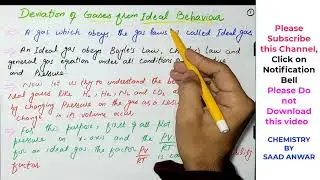 Deviation of Gases from Ideal Behaviour
A gas which obeys the gas laws is called Ideal gas
An Ideal gas obeys Boyle's Law, Charles's Law and
general gas equation under all conditions of
and Pressure.
Now let us try to understand the
real gases like He, H2, N2 and CO2
by changing Pressure on the gas as a
change in it's volume occur.
For this purpose, first of all plot
pressure on x-axis and the PV/RT
for an ideal gas the factor PV/RT is
factor
Please
Subscribe
this Channel,
Click on
Notification
Bell
Please Do
not
Download
this video
CHEMISTRY
BY
SAAD ANWAR